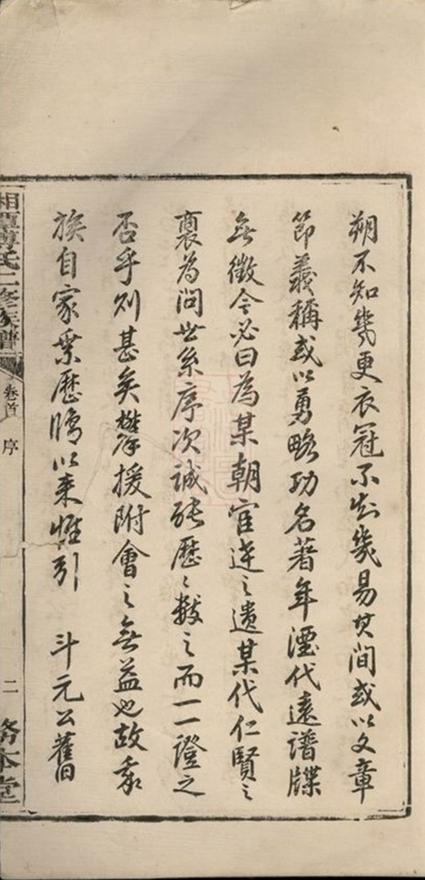 朔不知幾更衣冠不知幾易其間或以文章
節義稱或以勇略功名著年湮代遠譜牒
無徵今必曰為某朝官迹之遺某代仁賢之
裔為問世系序次誠能歷歷數之而一一證之
否乎則甚矣攀援附會之無益也故我
族自家業歷階以來惟引 斗元公舊
相潭 氏二修族譜 卷首 序 二 務本堂